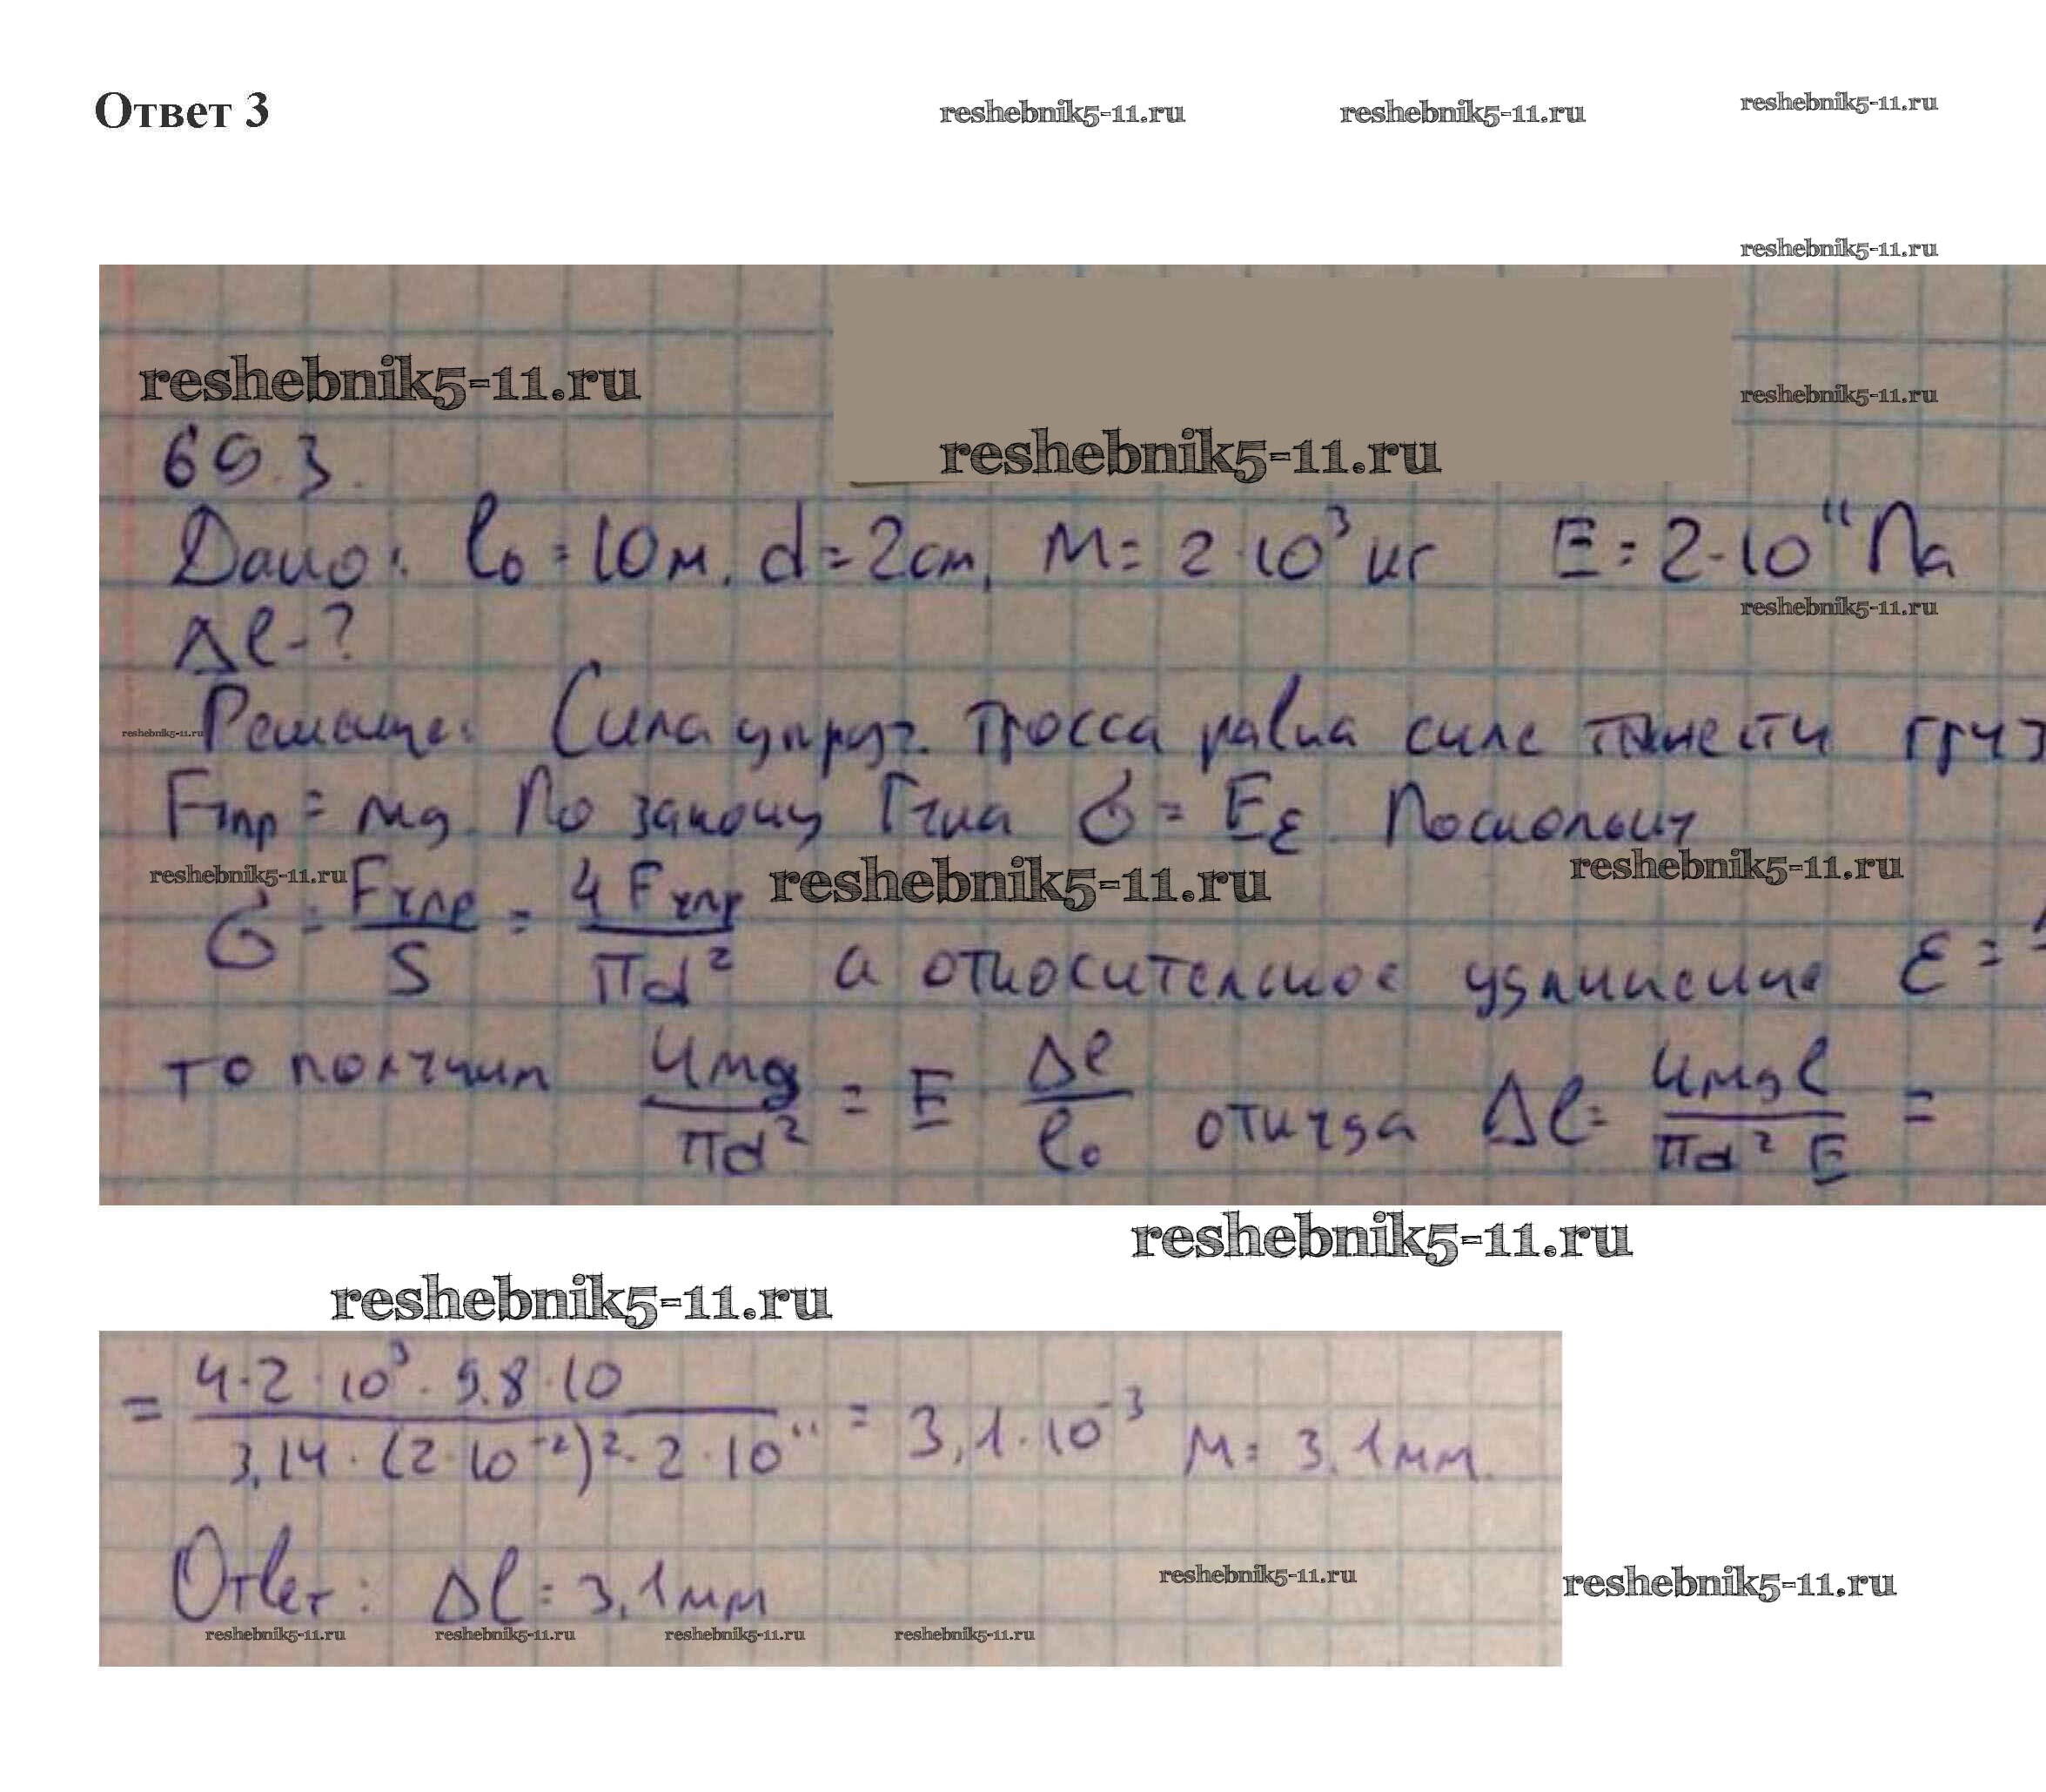 Ответ 3
reshebnik5-11.ru reshebnik5-11.ru reshebnik5-11.ru
reshebnik5-11.ru
reshebnik5-11.ru
reshebnik5-11.ru
reshebnik5-11.ru
69.3.
Дано: l₀ = 10м, d = 2см, M = 2·10³ кг E = 2·10¹¹ Па
reshebnik5-11.ru
Δl - ?
Решение: Сила упруг. тросса равна силе тяжести груз
reshebnik5-11.ru
Fупр = mg. По закону Гука σ = Eε. Поскольку
reshebnik5-11.ru reshebnik5-11.ru reshebnik5-11.ru
σ = Fупр/S = 4Fупр/πd² а относительное удлинение ε =
то получим 4mg/πd² = E Δl/l₀ откуда Δl = 4mgl/πd²E =
reshebnik5-11.ru
reshebnik5-11.ru
= 4·2·10³·9.8·10/3,14·(2·10⁻²)²·2·10¹¹ = 3,1·10⁻³ м = 3,1мм.
Ответ: Δl = 3,1мм
reshebnik5-11.ru reshebnik5-11.ru
reshebnik5-11.ru reshebnik5-11.ru reshebnik5-11.ru reshebnik5-11.ru